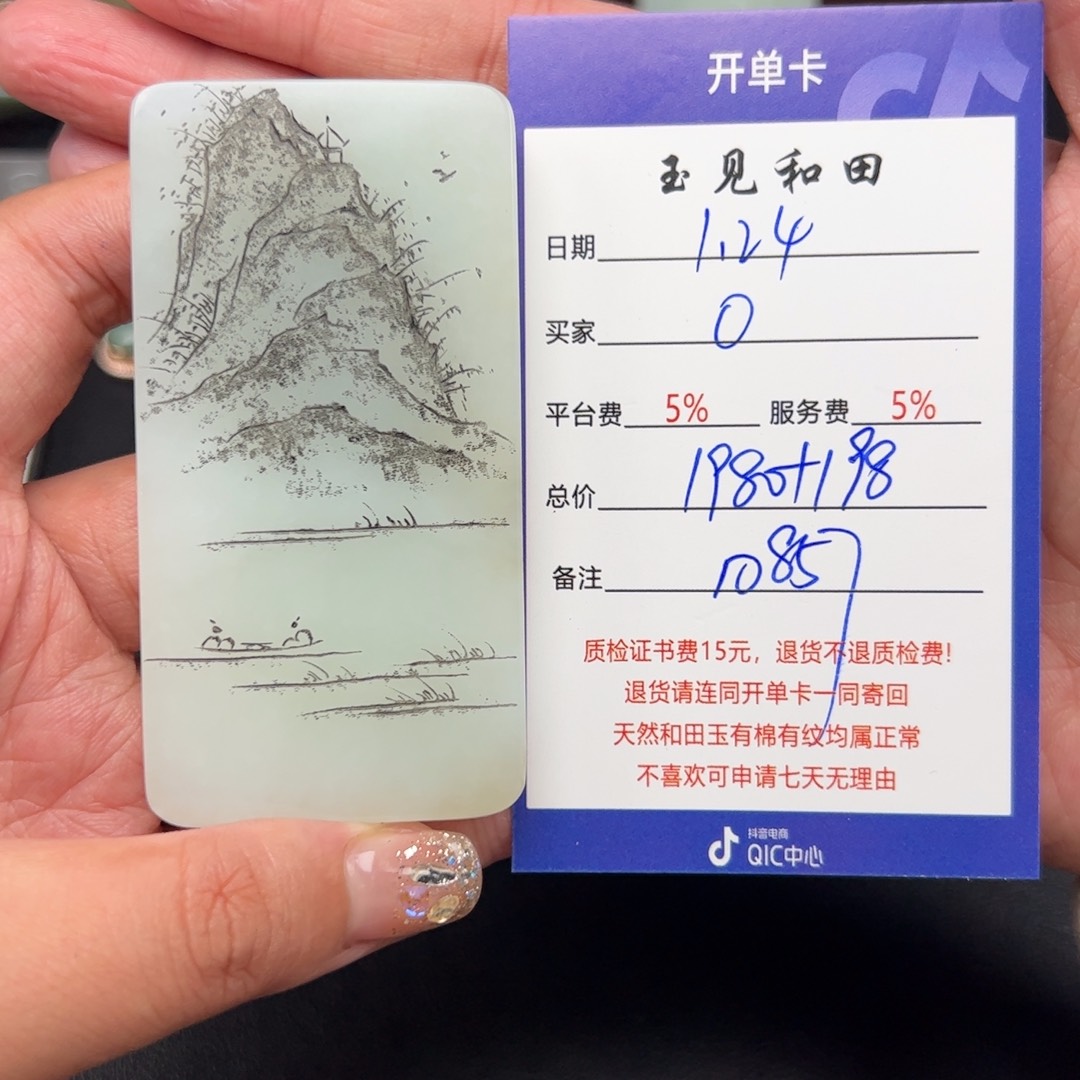 开单卡
玉见和田
日期 1.24
买家 0
平台费 5% 服务费 5%
总价 1980+198
备注 1085
质检证书费15元，退货不退质检费!
退货请连同开单卡一同寄回
天然和田玉有棉有纹均属正常
不喜欢可申请七天无理由
抖音电商
QIC中心